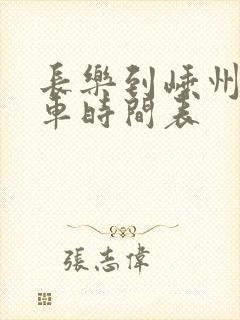 長樂到嵊州
車時間表
張志偉